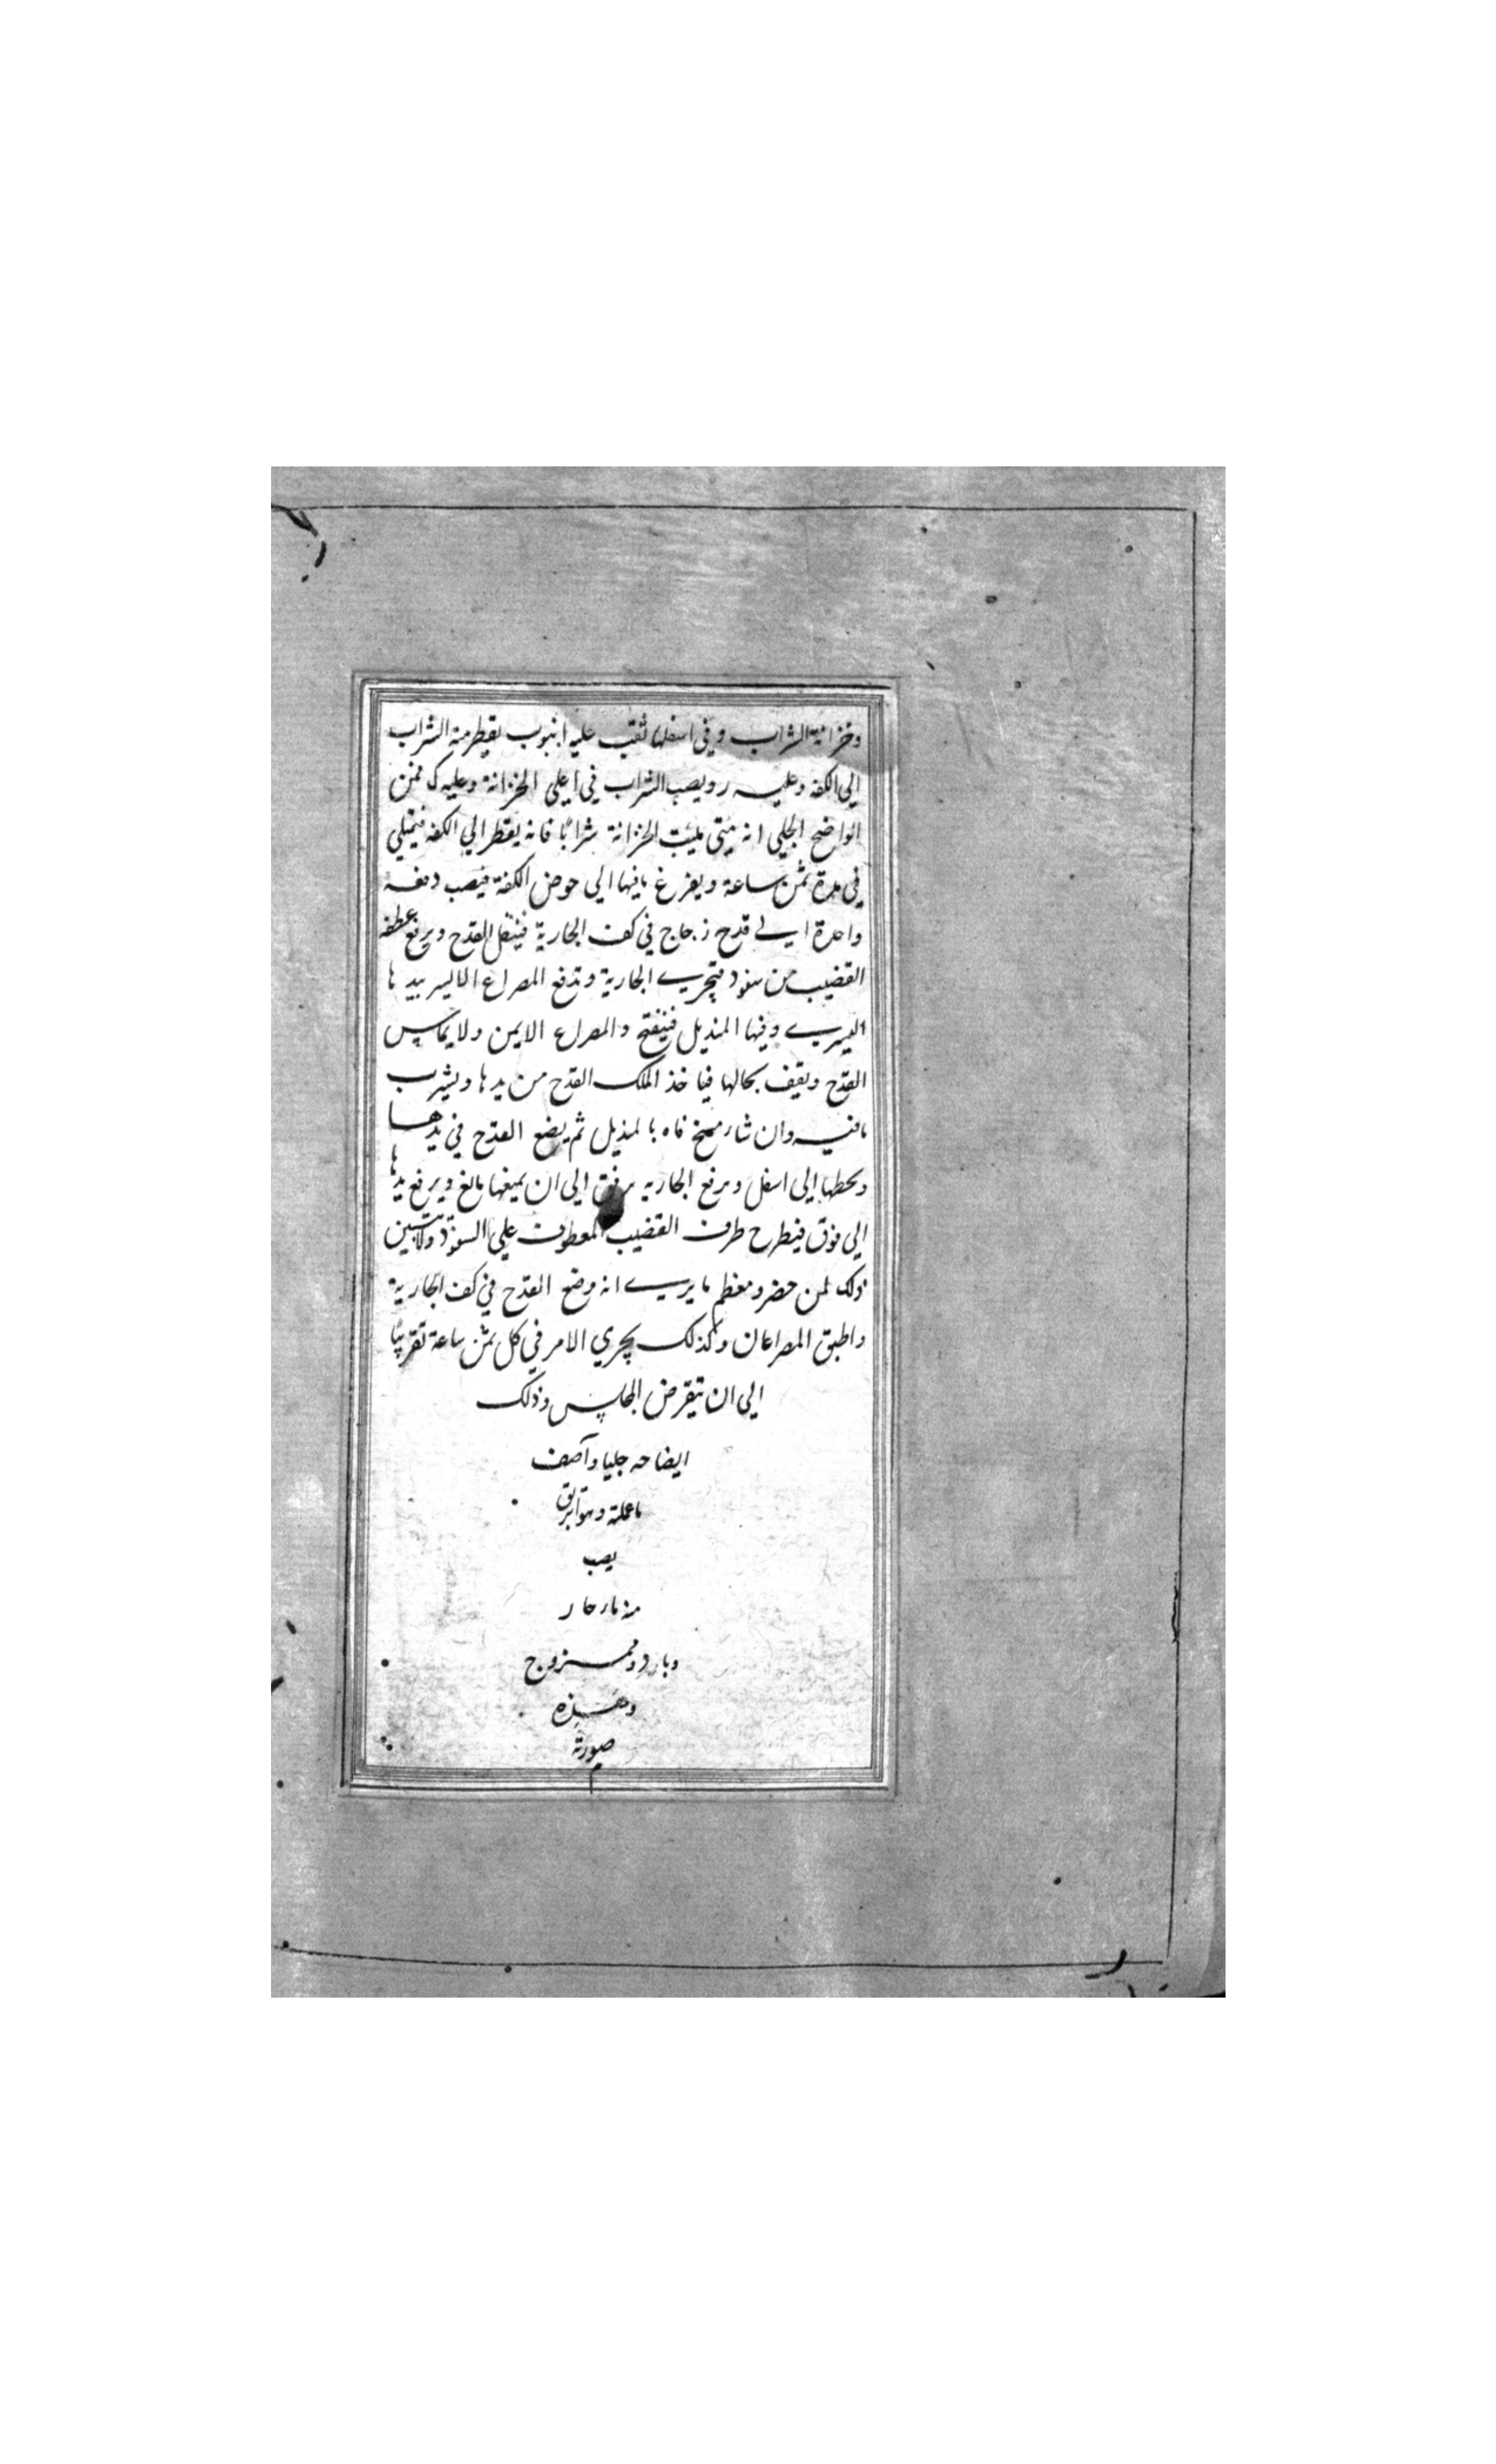 وخزانة الشراب وفي اسفلها ثقب عليه انبوب يقطر منه الشراب
الي الكفه وعليه ر ويصب الشراب في اعلي الخزانة وعليه ك فمن
الواضح الجلي انه متي مليت الخزانة شرابًا فانه يقطر الي الكفه فيمتلي
في مدة ثمن ساعة ويفرغ مافيها الي حوض الكفة فيصب دفعه
واحدة الي قدح زجاج في كف الجارية فيثقل القدح ويرفع عطفه
القضيب من سفود فتجري الجارية وتدفع المصراع الايسر بيدها
اليسري وفيها المنديل فينفتح والمصراع الايمن ولا يماس
القدح ويقف بحالها فياخذ الملك القدح من يدها ويشرب
مافيه وان شاء مسح فاه بالمنديل ثم يضع القدح في يدها
ويحطها الي اسفل ويرفع الجاريه برفق الي ان يمنعها مانع ويرفع يدها
الي فوق فيطرح طرف القضيب المعطوف علي السفود ولا يتبين
ذلك لمن حضر ومعظم مايري انه وضع القدح في كف الجارية
واطبق المصراعان وكذلك يجري الامر في كل ثمن ساعة تقريبًا
الي ان يتقرض المجلس وذلك
ايضاحه جليا وآصف
ماعملته وهو ابريق
يصب
منه ماء حار
وبارد وممزوج
وهذه
صورته